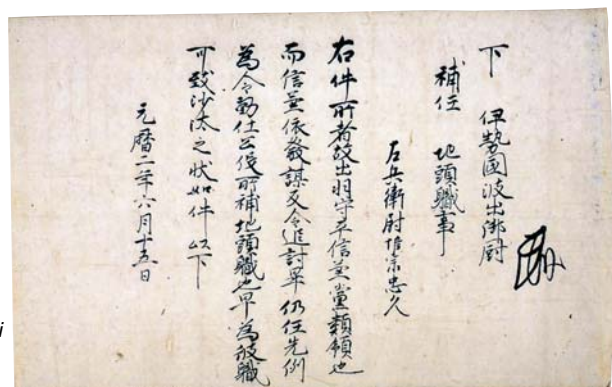 下　伊勢國波出御厨
補任　地頭職事
左兵衛尉惟宗忠久
右件所者故出羽守平信兼黨類領也
而信兼依發謀反令追討畢仍任先例
為令勤仕公役所補地頭職也早為彼職
可致沙汰之状如件以下
元暦二年六月十五日
i